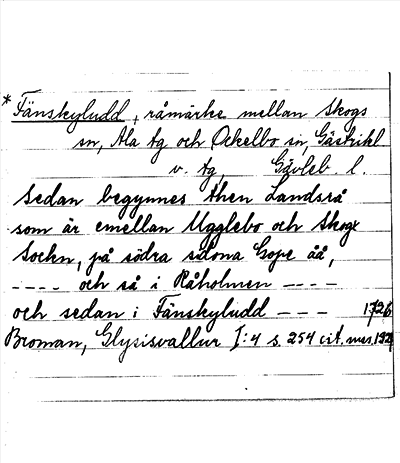 * Fänskyludd, råmärke mellan Skogs
sn, Ala tg och Ockelbo sn, Gästrikl
v. tg, Gävleb. l.
Sedan begynnes then Landsrå
som är emellan Ugglebo och Skogz
Sockn, på södra sidona Gope åå,
---- och så i Råholmen ----
och sedan i Fänskyludd --- 1726
Broman, Glysisvallur I:4 s. 254 cit.